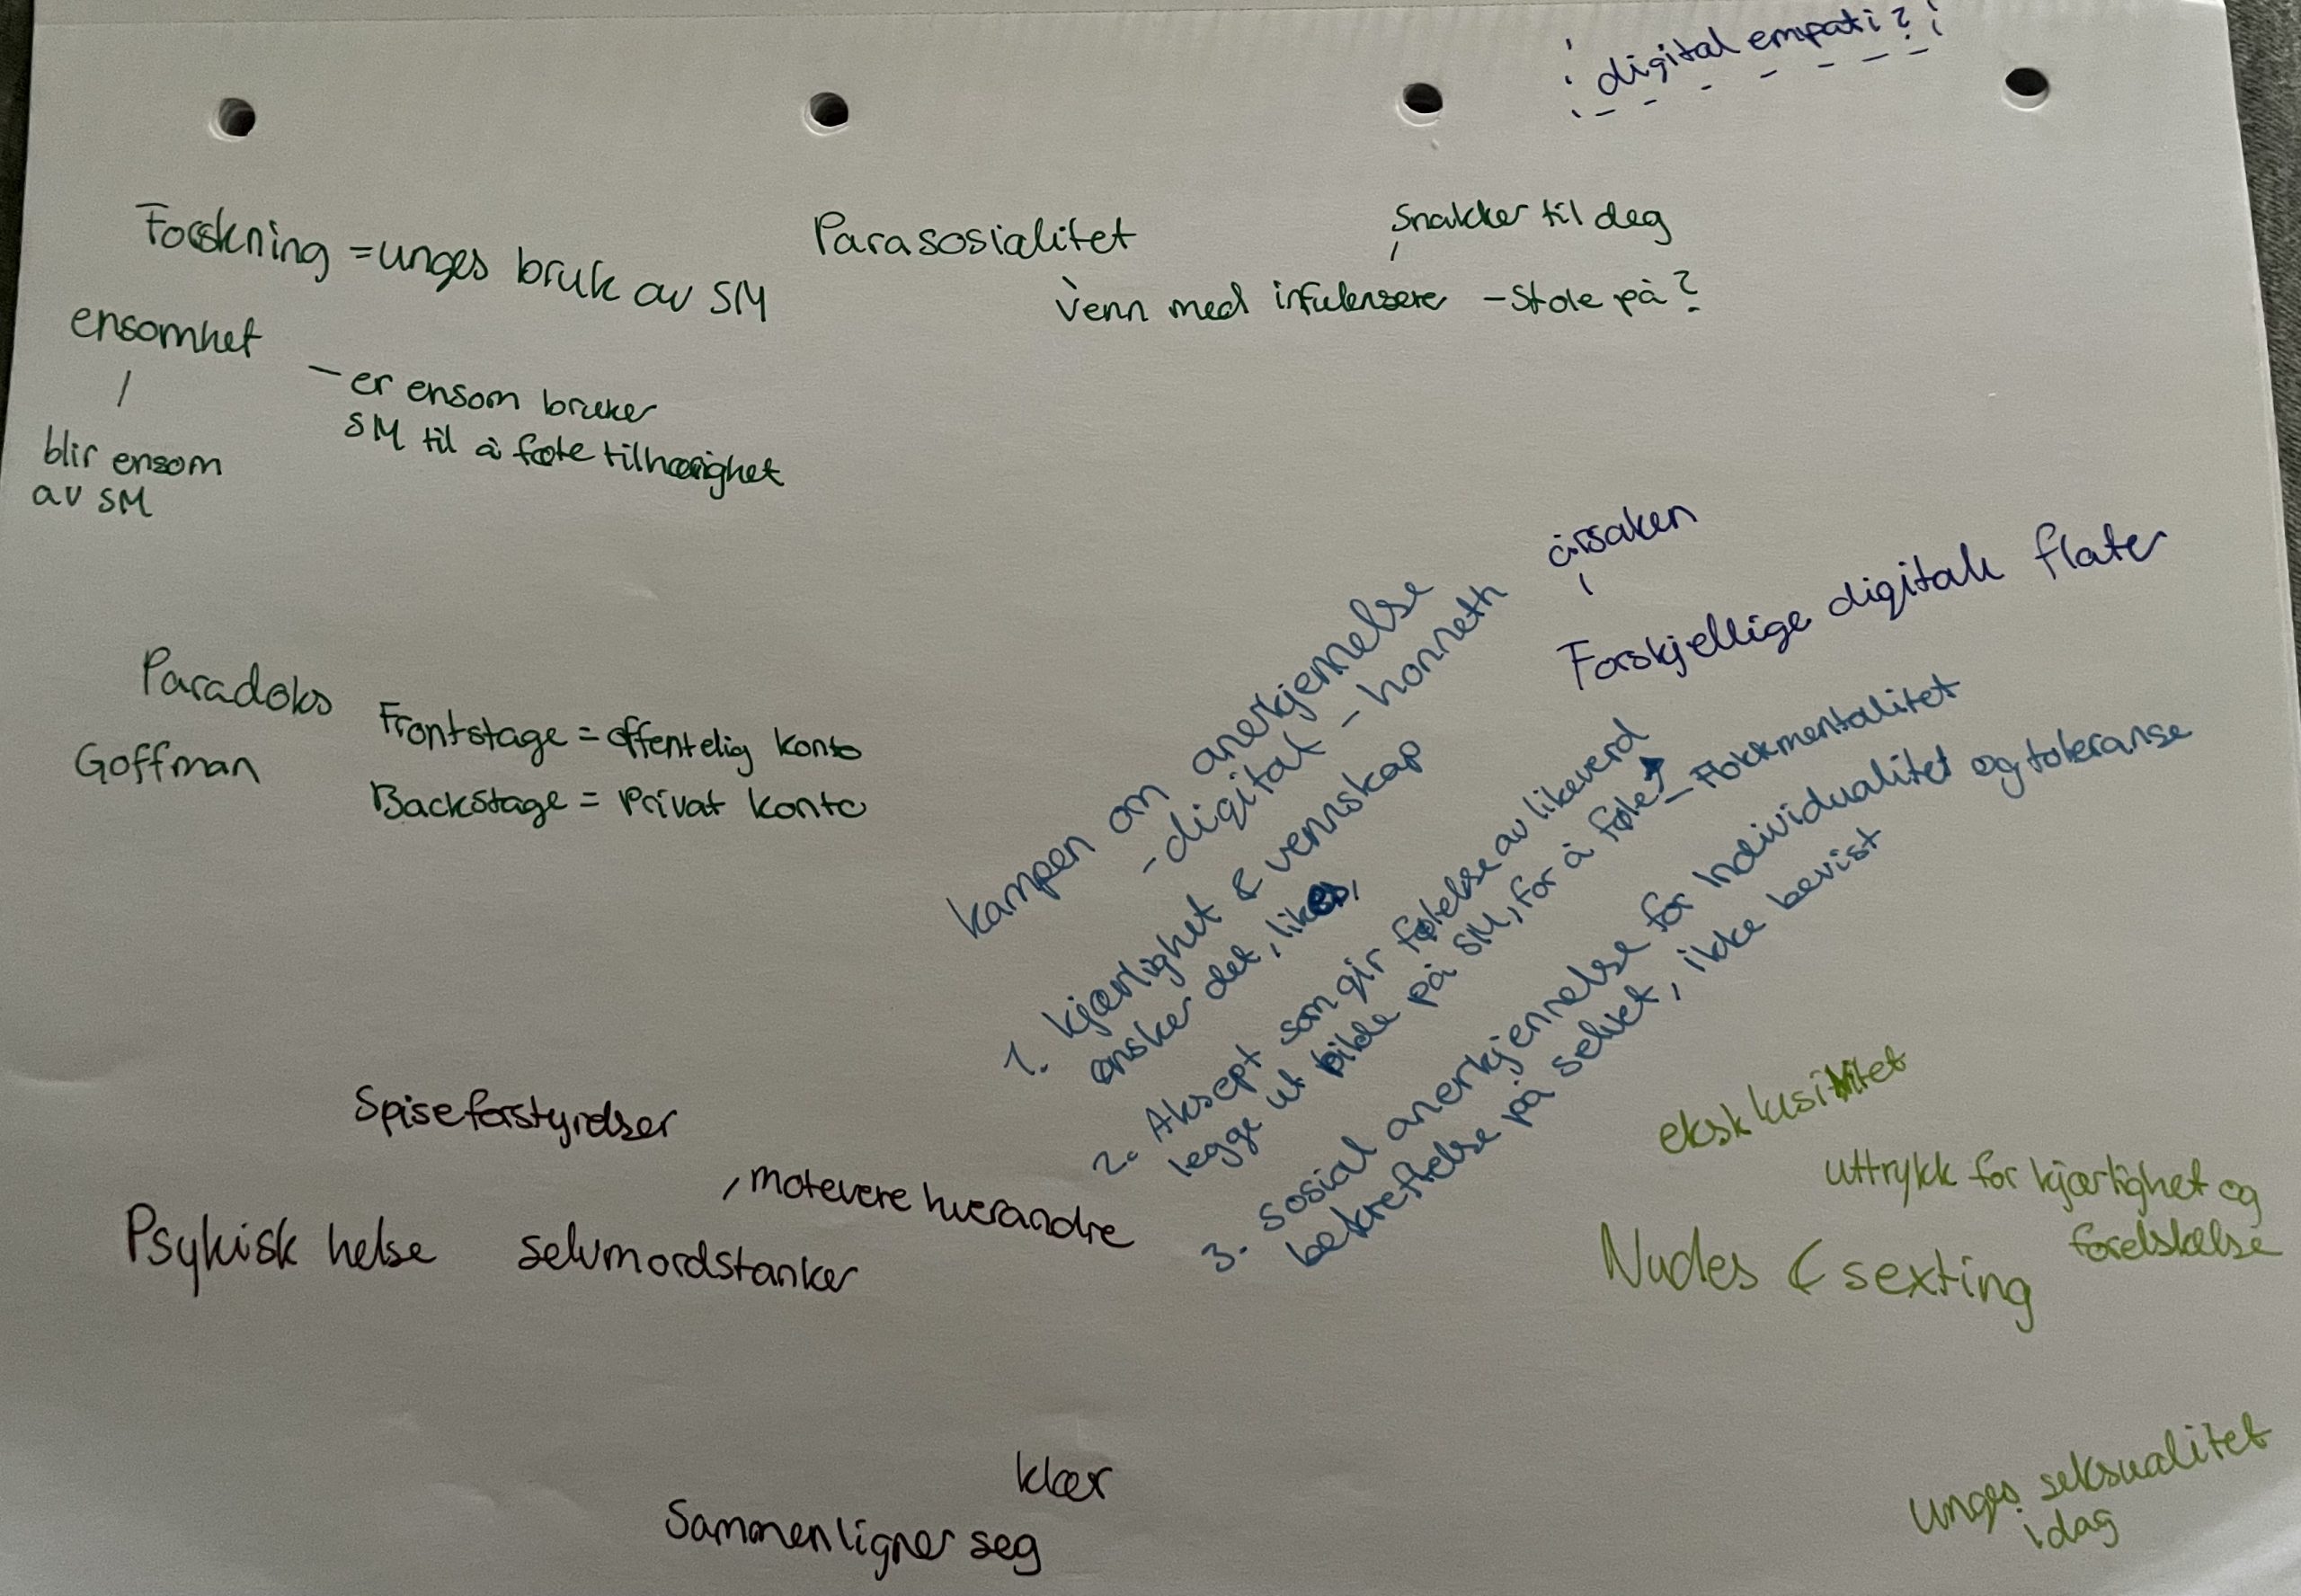 digital empati?
Forskning = unges bruk av SM
ensomhet
- er ensom bruker
SM til å føle tilhørighet
blir ensom
av SM
Parasosialitet
snakker til deg
Venn med infulensere - Stole på?
Paradoks
Goffman
Frontstage = offentelig konto
Backstage = Privat konto
årsaken
Forskjellige digitale flater
kampen om anerkjennelse
- digital - honneth
1. kjærlighet & vennskap
ønsker det, likes,
2. Aksept som gir følelse av likeverd
legge ut bilde på SM, for å føle - Flokkmentalitet
3. sosial anerkjennelse for individualitet og toleranse
bekreftelse på selvet, ikke bevist
Spiseforstyrrelser
motevere hverandre
Psykisk helse selvmordstanker
klær
Sammenligner seg
eksklusivitet
uttrykk for kjærlighet og
forelskelse
Nudes & sexting
unges seksualitet
idag